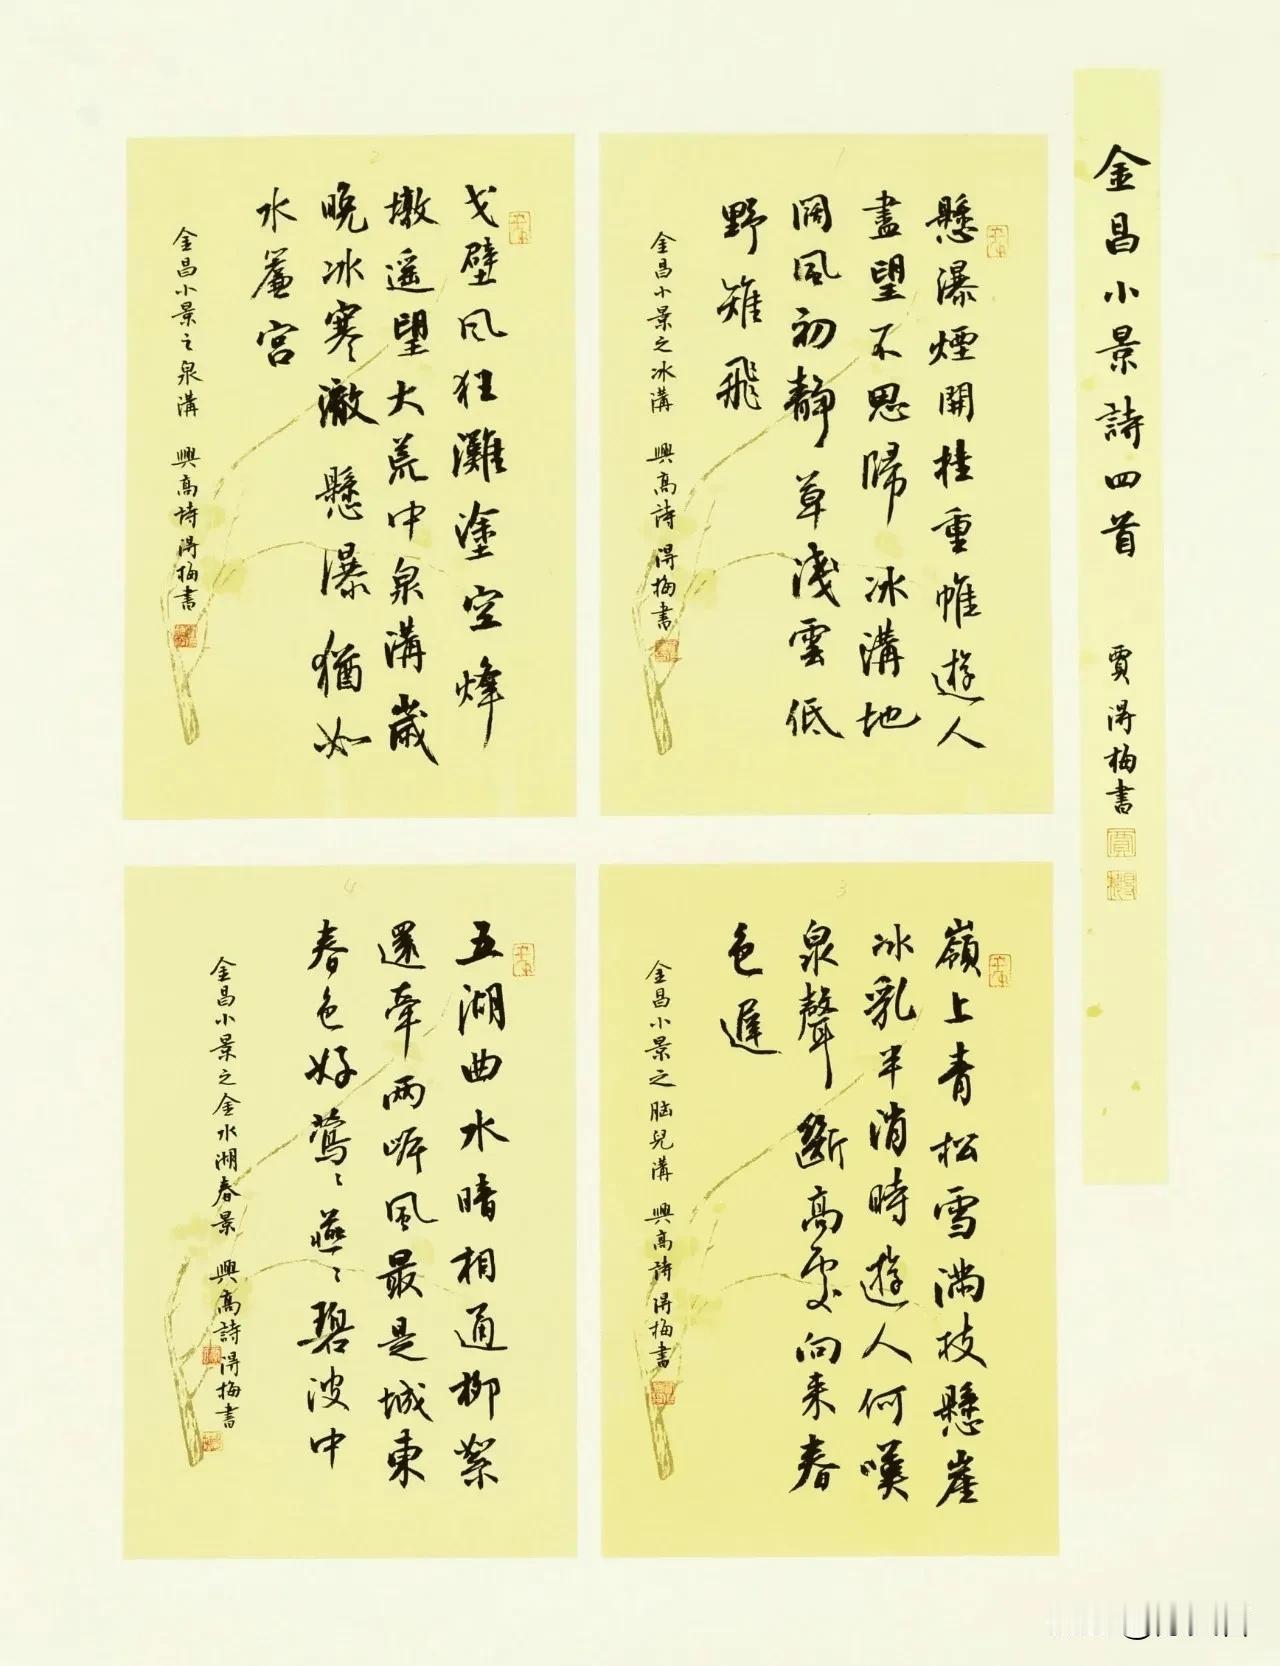 金昌小景詩四首 賈得梅書
懸瀑煙開挂重帷遊人
盡望不思歸冰溝地
闊風初靜草淺雲低
野雉飛
金昌小景之冰溝 興高詩 得梅書
戈壁风狂灘塗空烽
墩遥望大荒中泉溝歲
晚冰寒澈懸瀑猶如
水簾宮
金昌小景之泉溝 興高詩得梅書
嶺上青松雪满枝懸崖
冰乳半消時遊人何嘆
泉聲斷高處向来春
色遲
金昌小景之脑兒溝 興高詩得梅書
五湖曲水暗相通柳縈
還牽兩岍風最是城東
春色好鶯〻燕〻碧波中
金昌小景之金水湖春景 興高詩得梅書